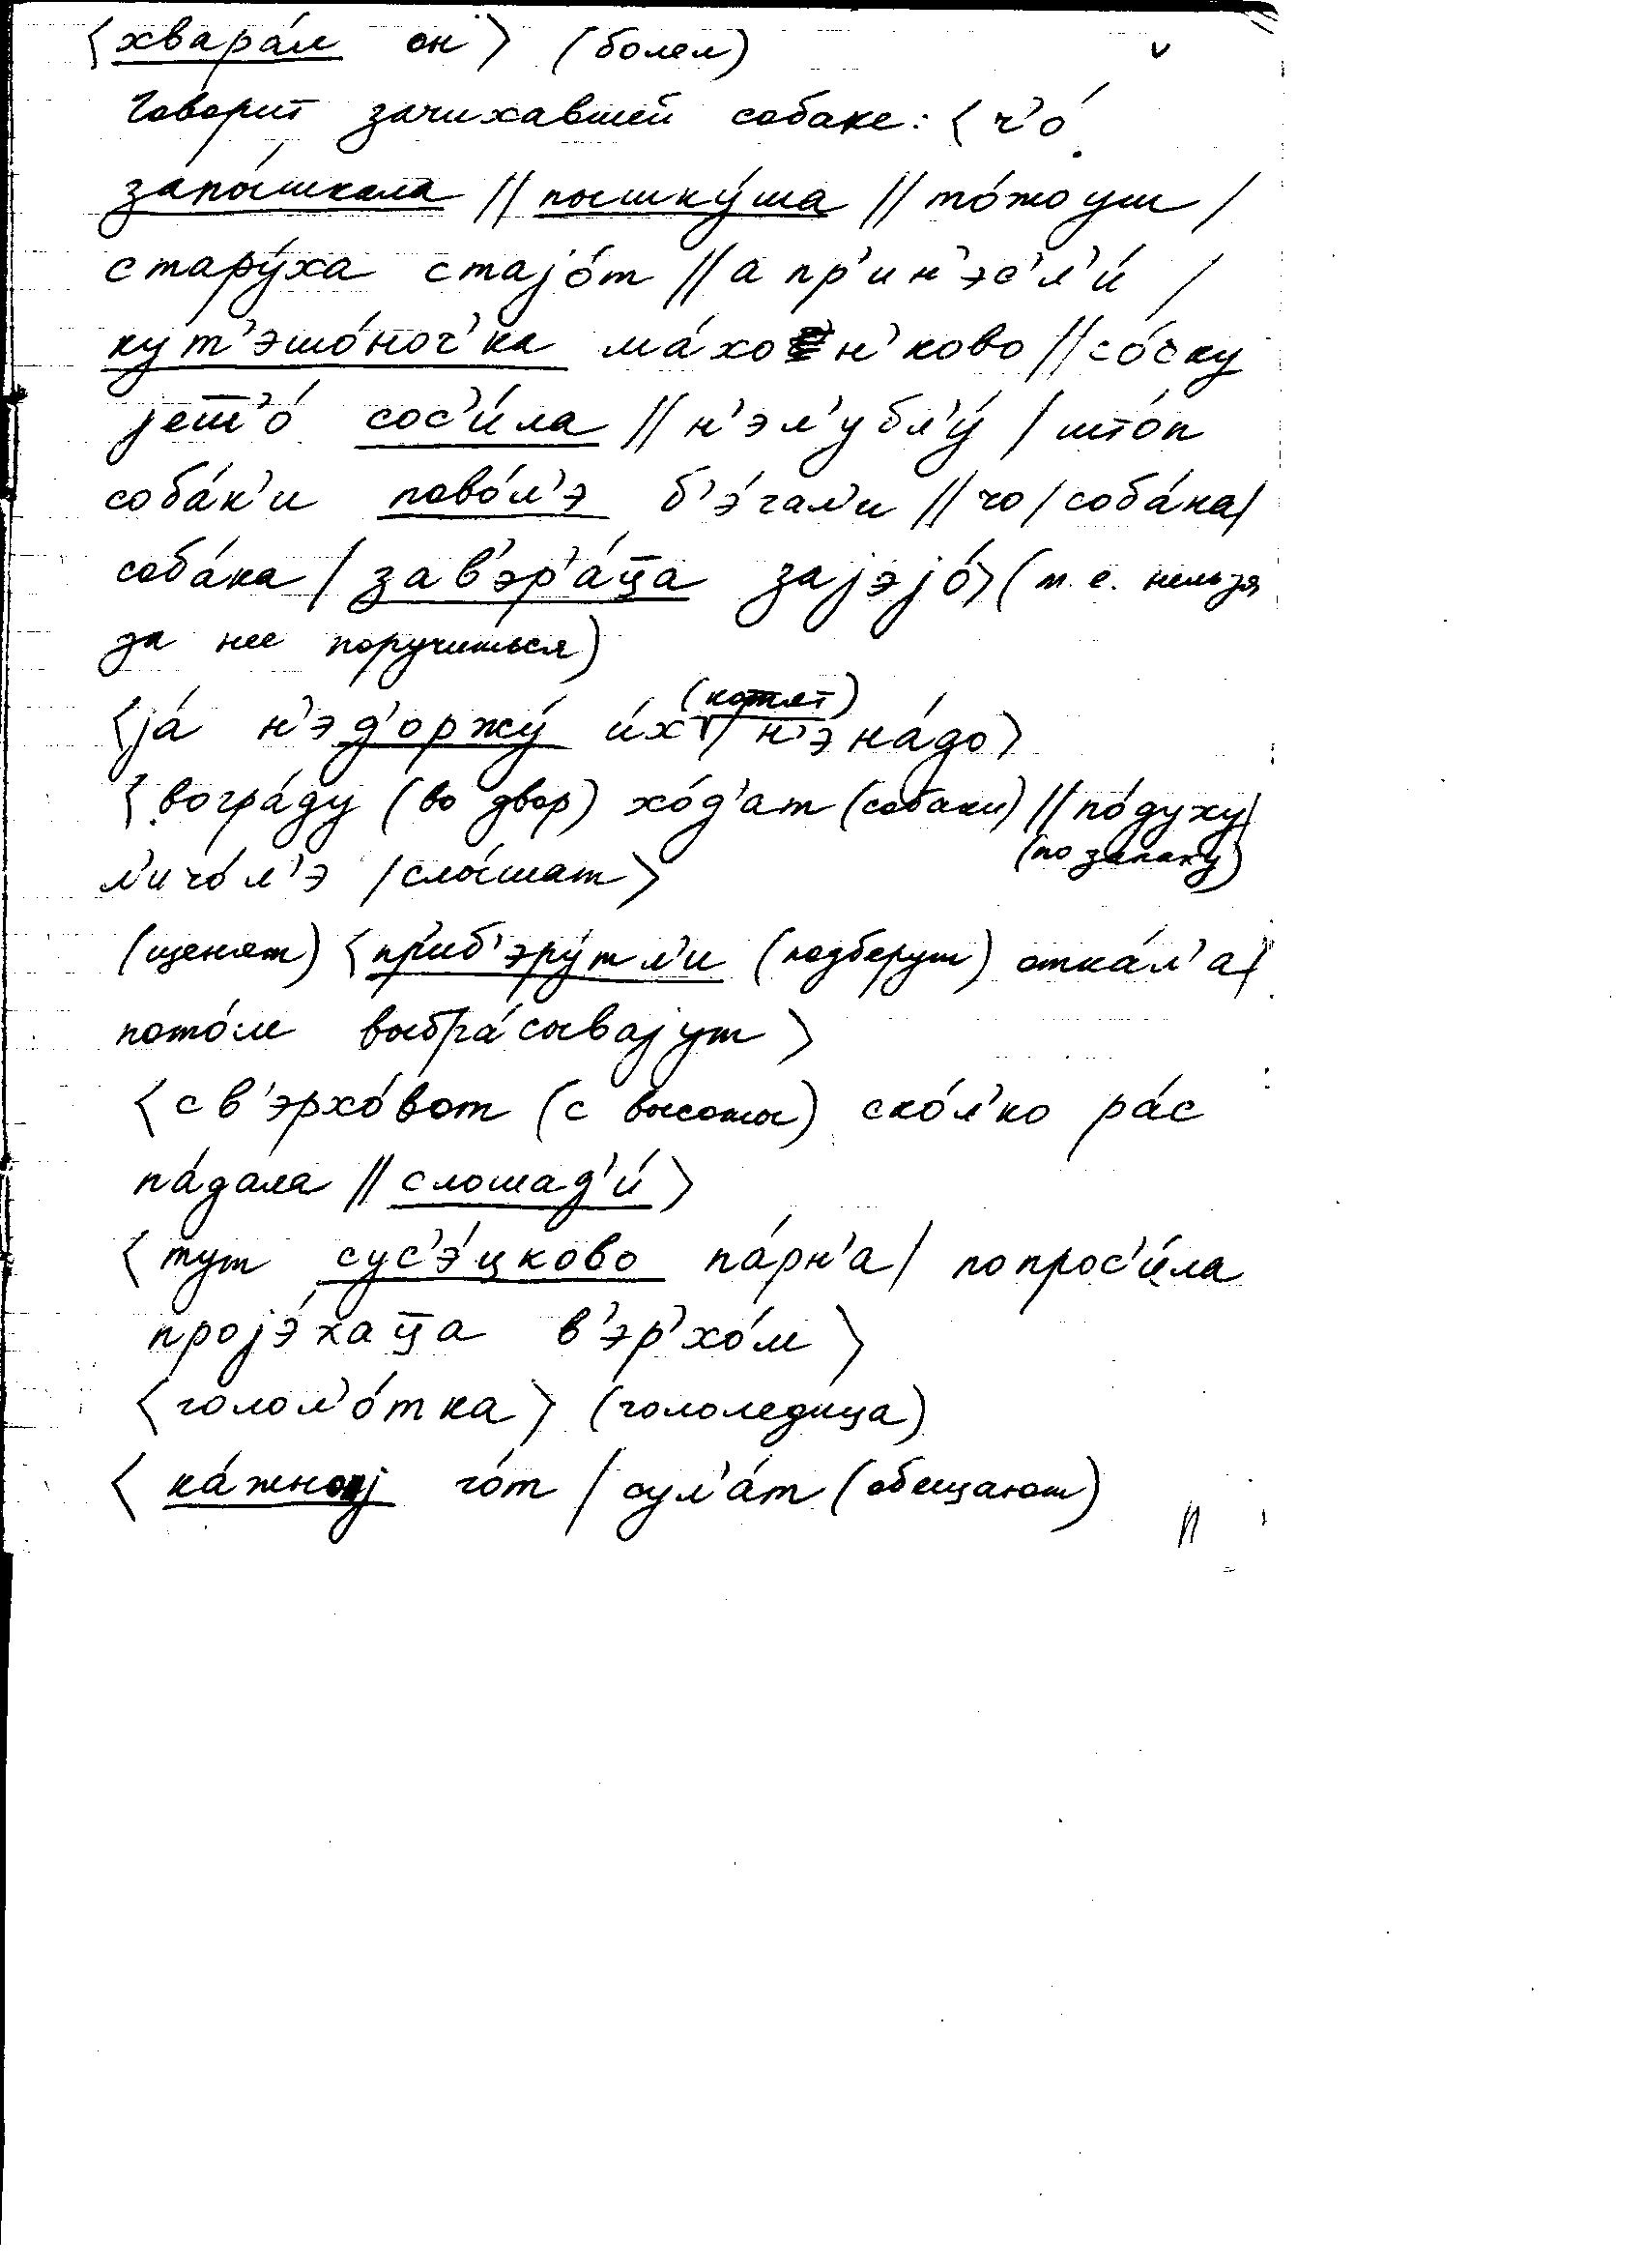 〈хвара́л он〉 (болел)
Говорит зачихавшей собаке: 〈ч'о́
запы́шкала // пышку́ша // то́жо уш /
стару́ха стајо́т // а пр'ин'эс'л'и́ /
кут'эшо́ноч'ка ма́хон'ково // со́ску
јешш'о́ сос'и́ла // н'эл'убл'у́ / што́п
соба́к'и пово́л'э б'э́гал'и // чо / соба́ка /
соба́ка / зав'эр'а́ц̅а зајэјо́〉 (т.е. нельзя
за нее поручиться)
〈ја́ н'эд'оржу́ и́х (котят) / н'эна́до〉
〈вогра́ду (во двор) хо́д'ат (собаки) // по́духу /
(по запаху)
л'ичо́л'э / слы́шат〉
(щенят) 〈приб'эру́тл'и (подберут) отка́л'а /
пото́м выбра́сывајут〉
〈св'эрхо́вот (с высоты) ско́л'ко ра́с
па́дала // слошад'и́〉
〈тут сус'э́цково па́рн'а / попрос'и́ла
пројэ́хац̅а в'эр'хо́м〉
〈голол'о́тка〉 (гололедица)
〈ка́жној го́т / сул'а́т (обещают)